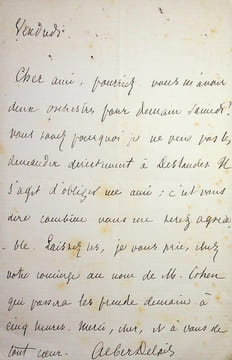 Vendredi.
Cher ami, pourriez-vous m'avoir
deux orchestres pour demain samedi?
Vous savez pourquoi je ne veux pas les
demander directement à Deslandes. Il
s'agit d'obliger une ami; c'est vous
dire combien vous me serez agréa-
ble. Laissez les, je vous prie, chez
votre concierge au nom de M. Cohen
qui passera les prendre demain à
cinq heures. Merci, cher, et à vous de
tout cœur. Albert Delpit